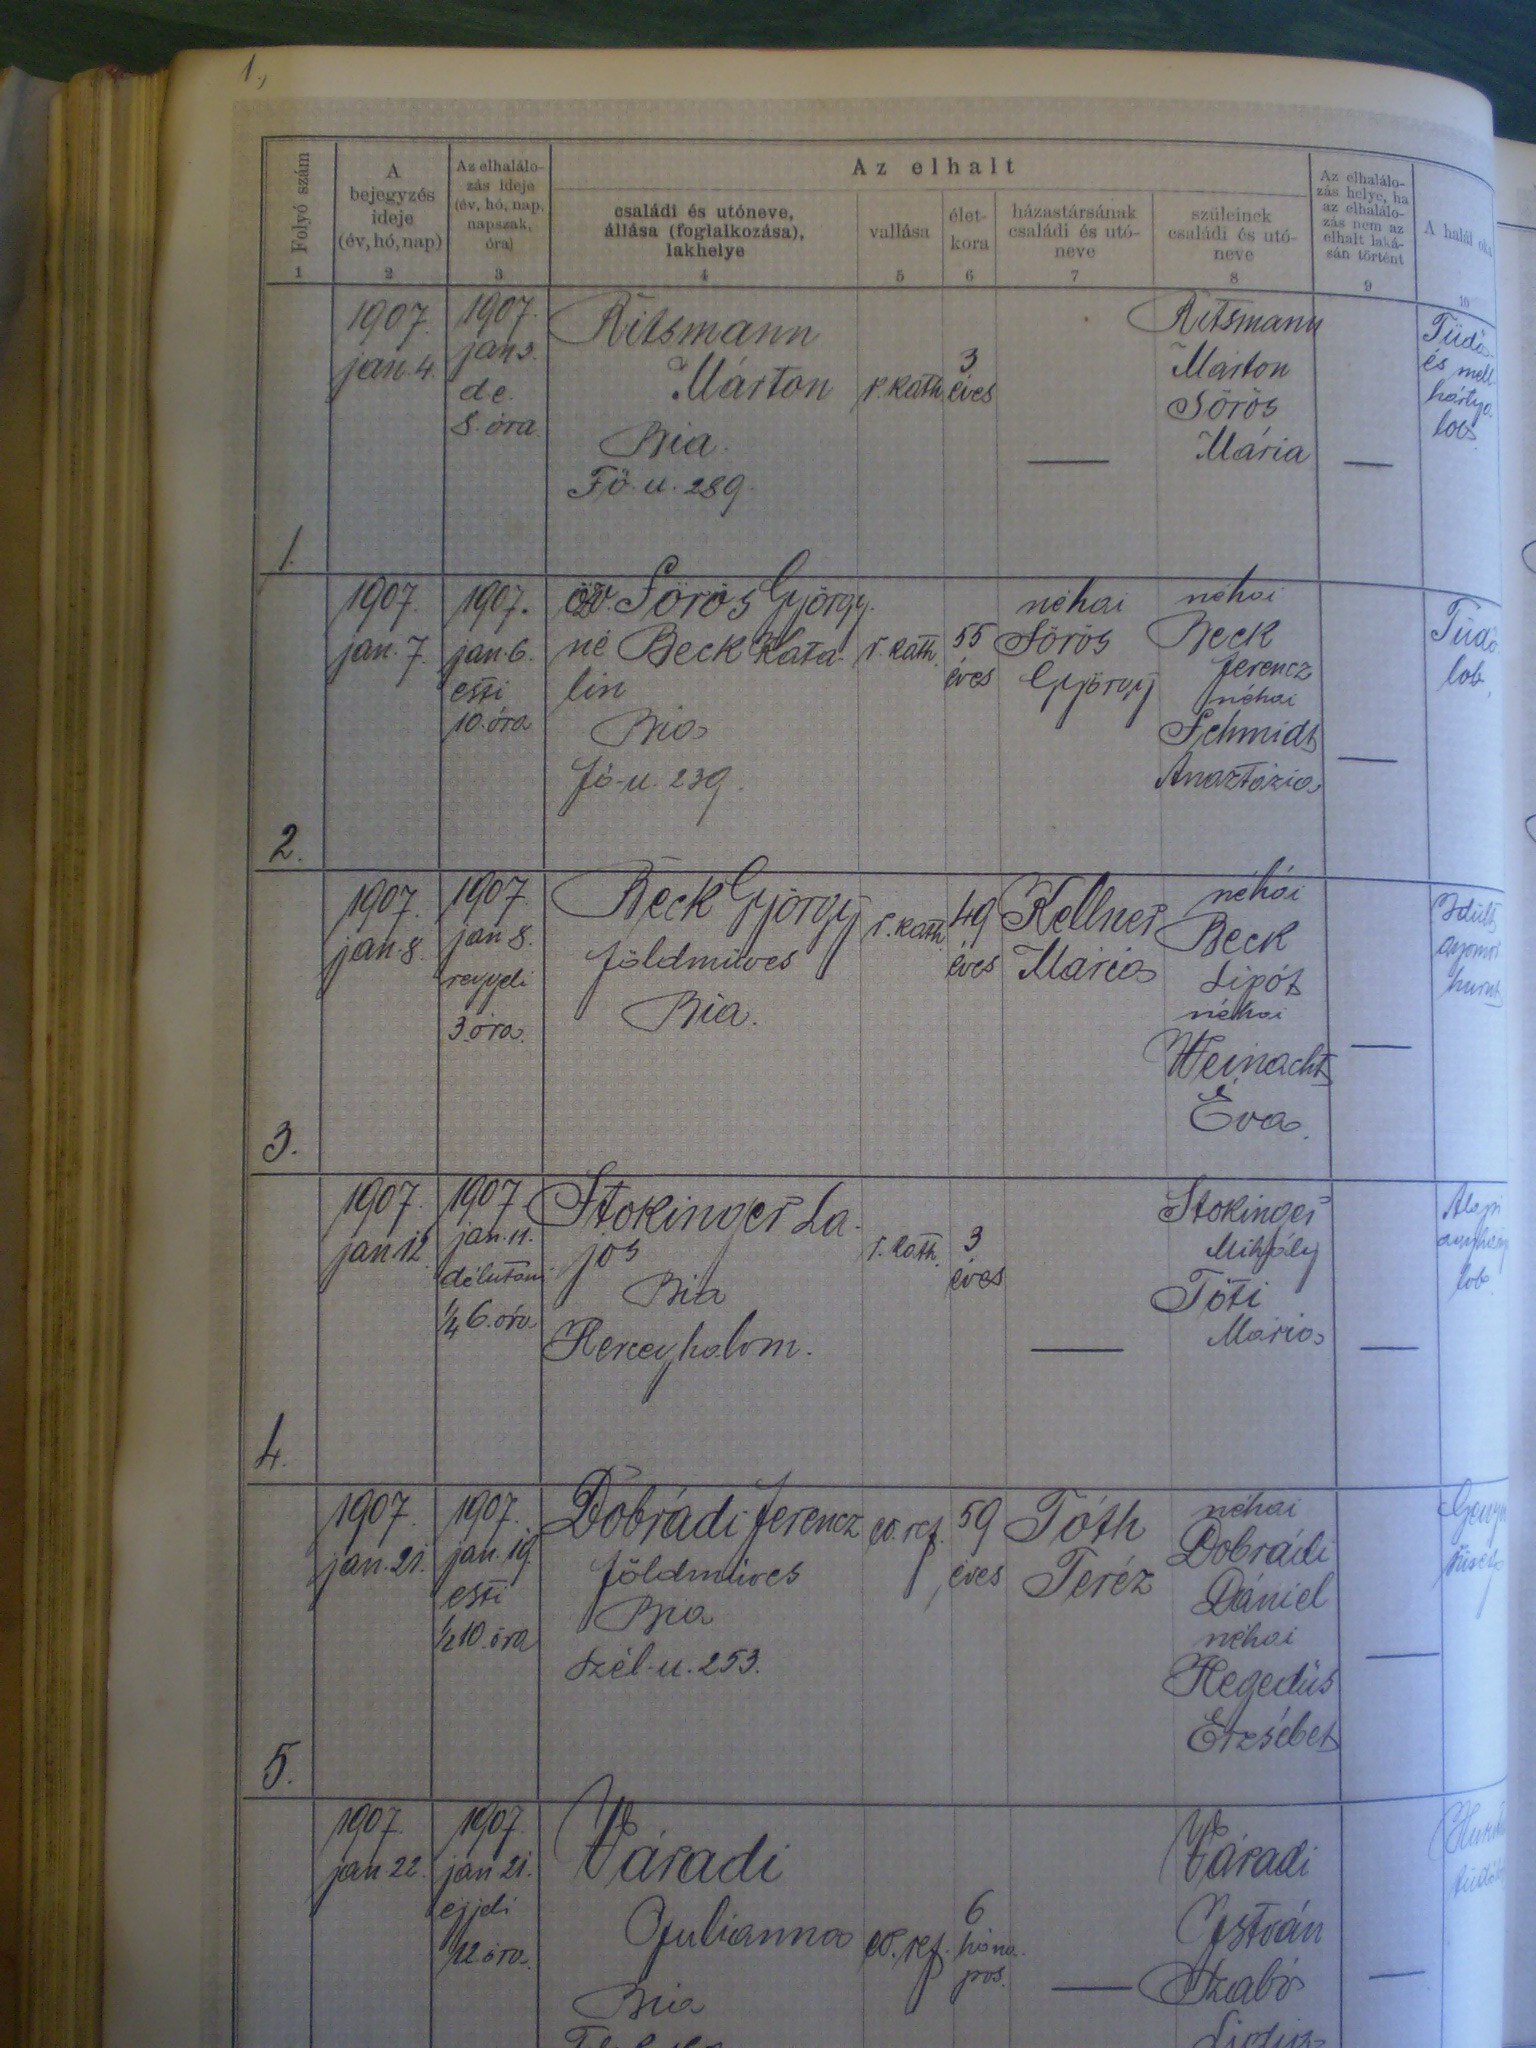 1.,
Folyó szám
1
A
bejegyzés
ideje
(év, hó, nap)
2
Az elhalálo-
zás ideje
(év, hó, nap,
napszak,
óra)
3
Az elhalt
családi és utóneve,
állása (foglalkozása),
lakhelye
4
vallása
5
élet-
kora
6
házastársának
családi és utó-
neve
7
szüleinek
családi és utó-
neve
8
Az elhalálo-
zás helye, ha
az elhalálo-
zás nem az
elhalt laká-
sán történt
9
A halál oka
10
1.
1907.
jan. 4.
1907.
jan 3.
d.e.
8. óra.
Ritsmann
Márton
Bia.
Fő-u. 289.
r. kath.
3
éves
—
Ritsmann
Márton
Sörös
Mária
—
Tüdő
és mell
hártya
lob.
2.
1907.
jan. 7.
1907.
jan. 6.
esti
10. óra
özv. Sörös György-
né Beck Kata-
lin
Bia
fő-u. 239.
r. kath.
55
éves
néhai
Sörös
György
néhai
Beck
ferencz
néhai
Schmidt
Anasztázia
—
Tüdő
lob.
3.
1907.
jan. 8.
1907.
jan 8.
reggeli
3. óra.
Beck György
földmüves
Bia.
r. kath.
49
éves
Kellner
Mária
néhai
Beck
Lipót
néhai
Weinacht
Éva.
—
Idült
gyomor
hurut
4.
1907.
jan 12.
1907
jan. 11.
délutáni
¼ 6. óra
Stokinger La-
jos
Bia
Herceghalom.
r. kath.
3
éves
—
Stokinger
Mihály
Tóti
Mária
—
lob.
5.
1907.
jan. 21.
1907.
jan. 19.
esti
½ 10. óra
Dobrádi ferencz
földmüves
Bia
Szél-u. 253.
ev. ref.
59
éves
Tóth
Teréz
néhai
Dobrádi
Dániel
néhai
Hegedüs
Erzsébet
—
1907.
jan. 22.
1907.
jan 21.
éjjeli
12 óra.
Váradi
Julianna
Bia
ev. ref.
6
hóna-
pos.
—
Váradi
István
Szabó
Lidia
—